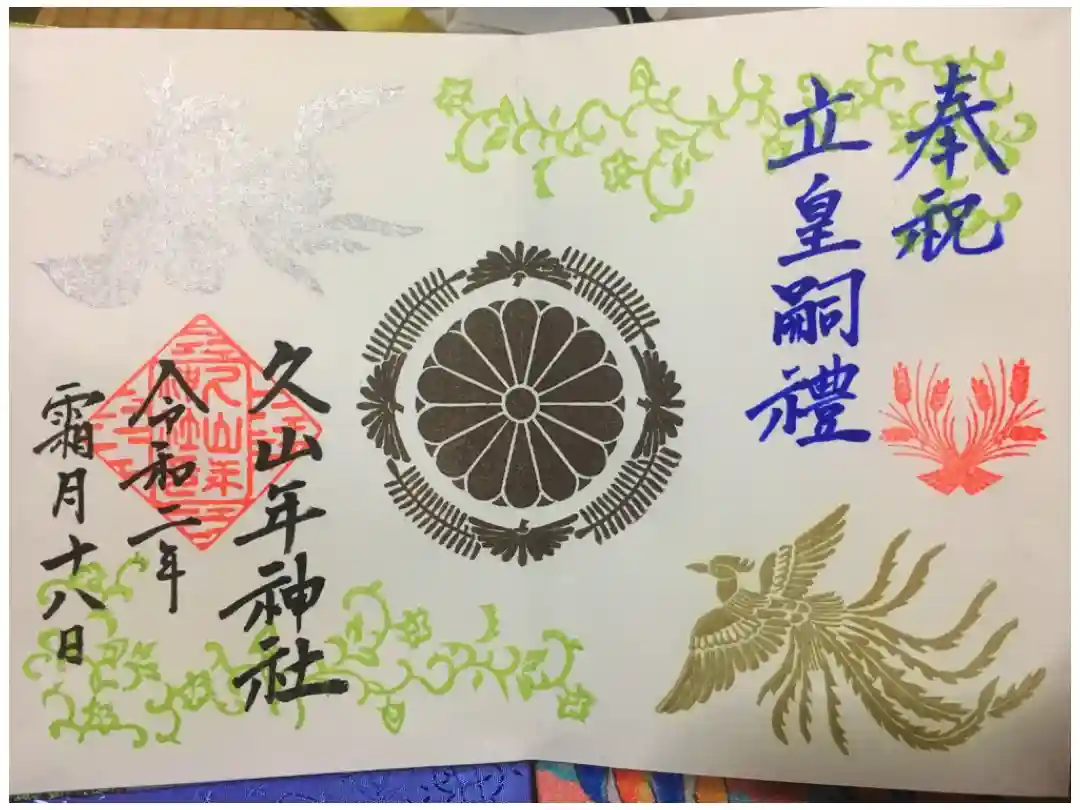 奉祝
立皇嗣禮
久山年神社
令和二年
霜月十八日